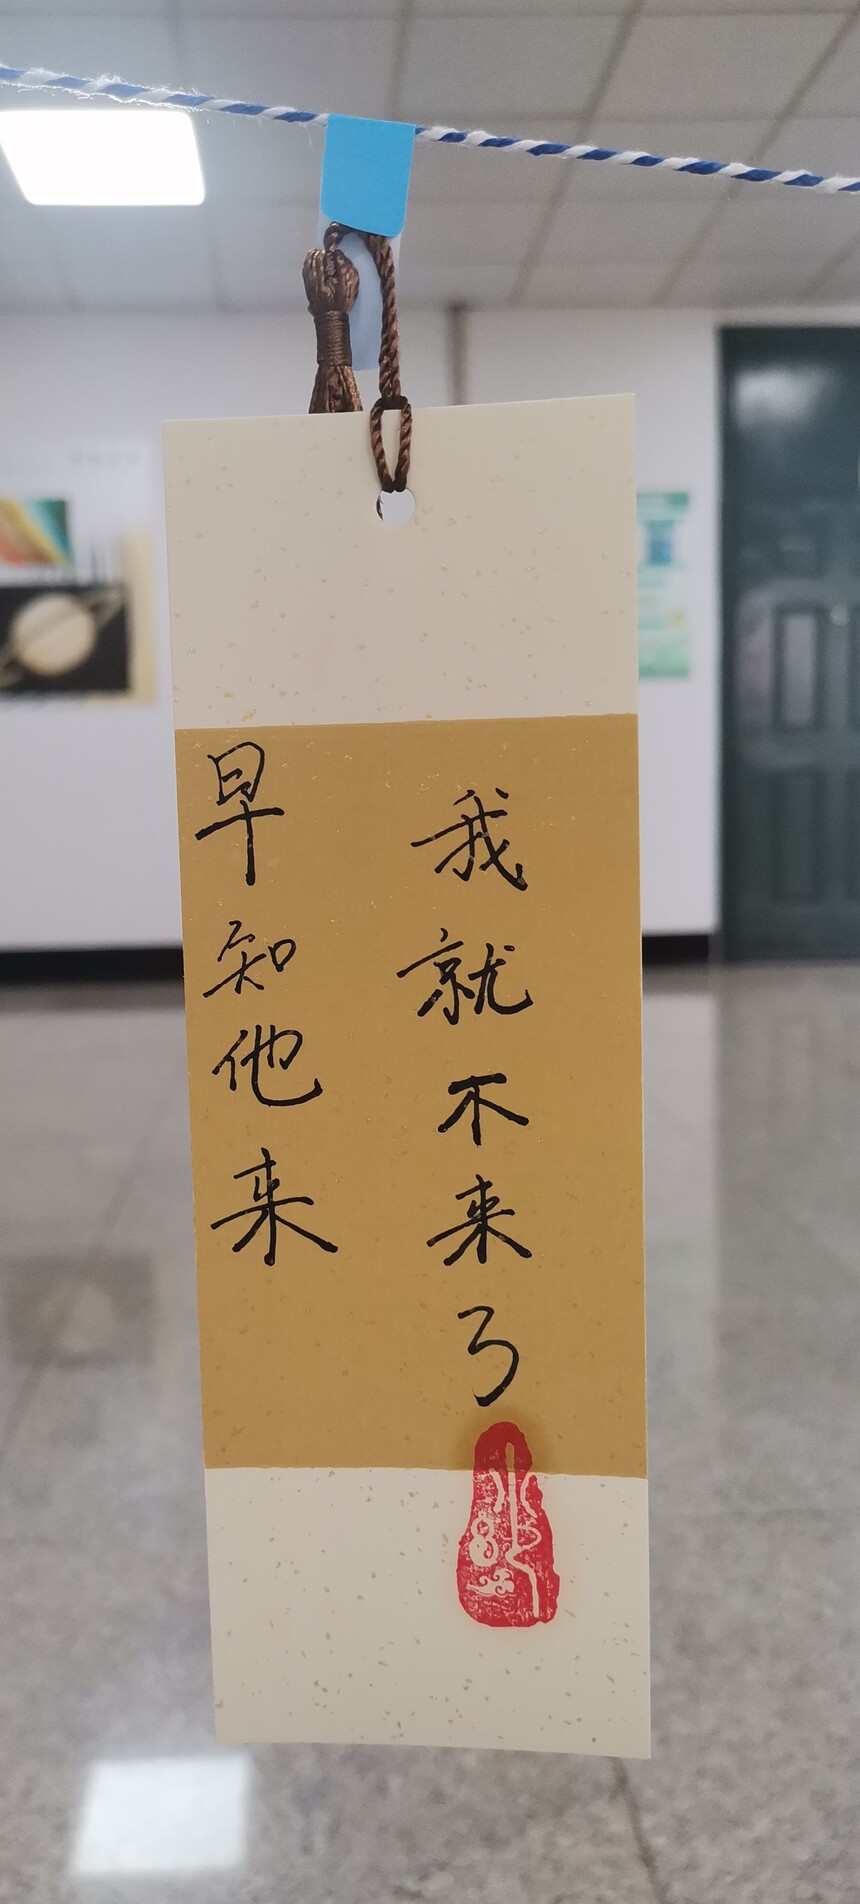 早知他来
我就不来了